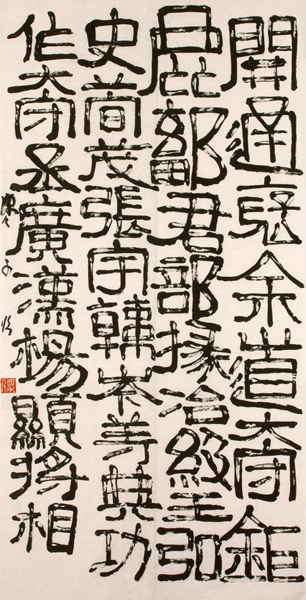 開通褒余道大守鉅
鹿鄐君部掾冶級王弘
史荀茂張宇韓岑等典功
作大守丞廣漢楊顯將相